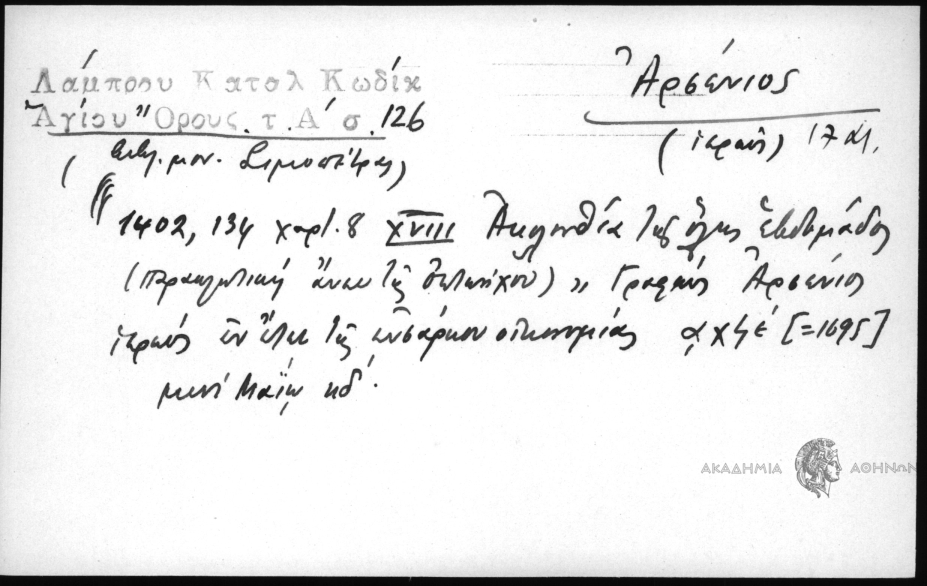 Λάμπρου Καταλ Κωδίκ
Ἁγίου Ὄρους. τ. Α΄ σ. 126
( μον. Σιμωπέτρας)
Ἀρσένιος
(ἱερεὺς) 17 αι.
1402, 134 χαρτ. 8 XVIII Ἀκολουθία τῆς ὅλης ἑβδομάδος
(Παρακλητικὴ ἄνευ τῆς ) „ Γραφεὺς Ἀρσένιος
ἱερεὺς ἐν ἔτει τῆς ἐνσάρκου οἰκονομίας ͵αχϟέ [=1695]
μηνὶ Μαΐῳ κδ΄.
ΑΚΑΔΗΜΙΑ ΑΘΗΝΩΝ